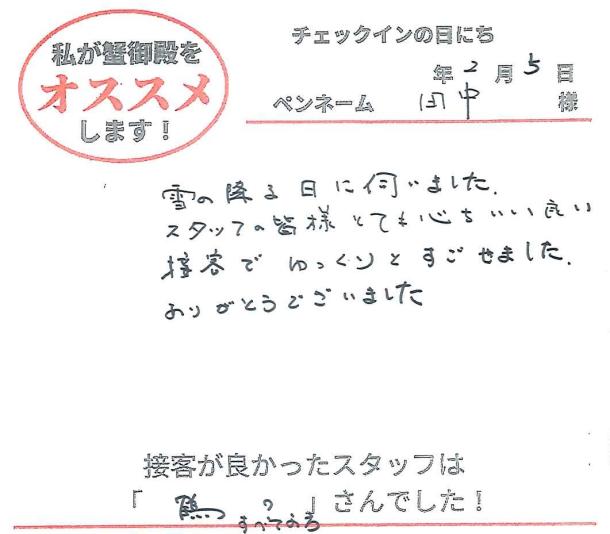 私が蟹御殿を
オススメ
します！
チェックインの日にち
年 2 月 5 日
ペンネーム 田中 様
雪の降る日に伺いました.
スタッフの皆様とても心ちいい良い
接客でゆっくりとすごせました.
ありがとうございました
接客が良かったスタッフは
「 鶴 ? 」さんでした！